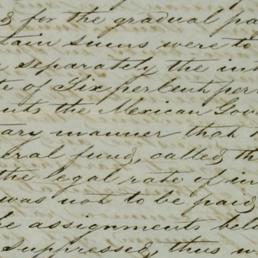 & for the gradual pa
tain sums were to
n separately the in
te of Six per cent per
nts the Mexican Gov
ary manner that
eral fund, called th
the legal rate of in
was not to be paid,
he assignments bel
Suppressed, thus w